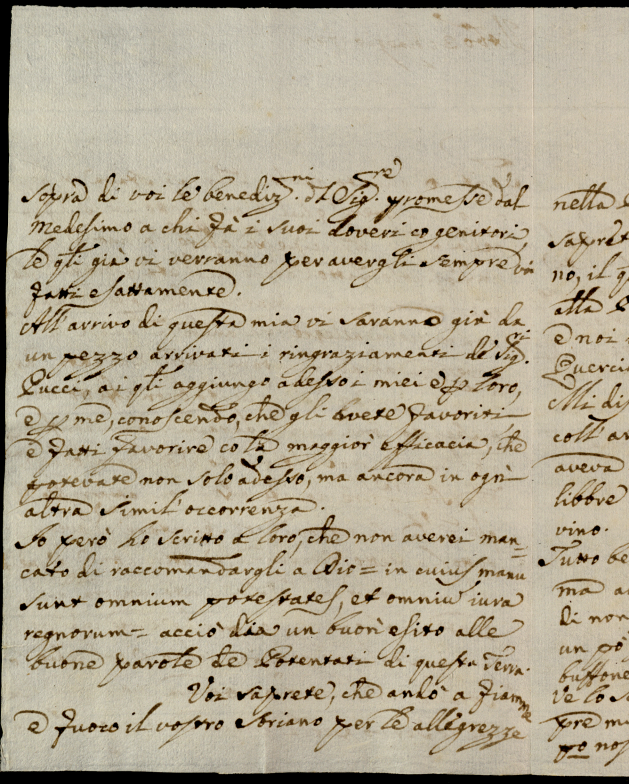 sopra di voi le benediz.ni d'l Sig.re promesse dal
medesimo a chi fà i suoi doveri co genitori
le q'li già vi verranno per avergli sempre voi
fatti esattamente.
All'arrivo di questa mia vi saranno già da
un pezzo arrivati i ringraziamenti de Sig.ri
Pucci, ai q'li aggiungo adesso i miei e p loro,
e p me, conoscendo, che gli avete favoriti,
e fatti favorire cola maggior efficacia, che
potevate non solo adesso, ma ancora in ogni
altra simil'occorrenza.
Io però ho scritto a loro, che non averei man=
cato di raccomandargli a Dio= in cuius manu
sunt omnium potestates, et omniu iura
regnorum= acciò dia un buon esito alle
buone parole de Potentati di questa Terra.
Voi saprete, che andò a fiamme
e fuoco il vostro Soriano per le allegrezze
nella
sapret
no, il q
alla
e noi
Querci
Mi di
coll' a
aveva
libbre
vino.
Tutto be
ma a
di non
un pò
buffone
ve lo s
pre m
po no